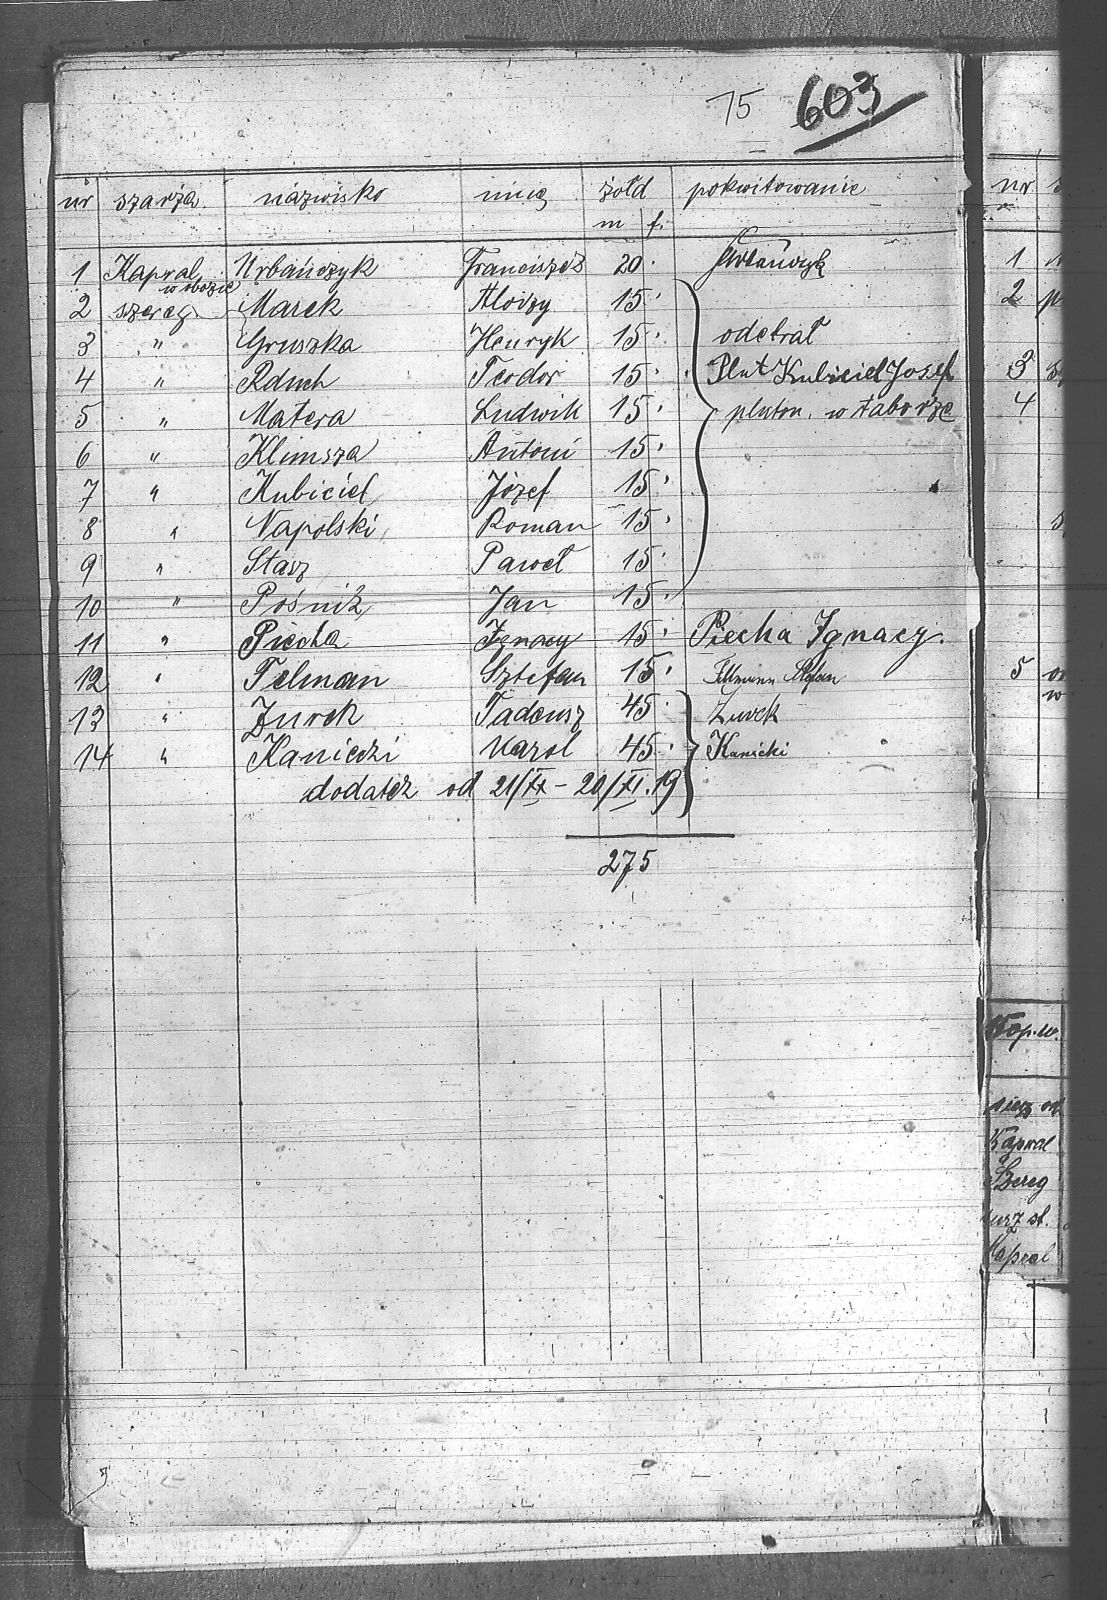 75 603
nr szarża nazwisko imię żołd pokwitowanie
m f.
1 Kapral Urbańczyk Franciszek 20
w obozie
2 szereg Marek Aloizy 15
3 " Gruszka Henryk 15 odebrał
4 " Rduch Teodor 15 Plut Kubiciel Josef
5 " Matera Ludwik 15 pluton. w taborze
6 " Klimsza Antoni 15
7 " Kubiciel Józef 15
8 " Napolski Roman 15
9 " Stasz Paweł 15
10 " Pośnik Jan 15
11 " Piecha Ignacy 15 Piecha Ignacy.
12 " Telman Sztefan 15
13 " Żurek Tadeusz 45 Żurek
14 " Kanicki Karol 45 Kanicki
dodatek od 21/IX – 20/XI.19
275
nr
1
2 p
3
4
5
Kapral
Szereg
Kapral